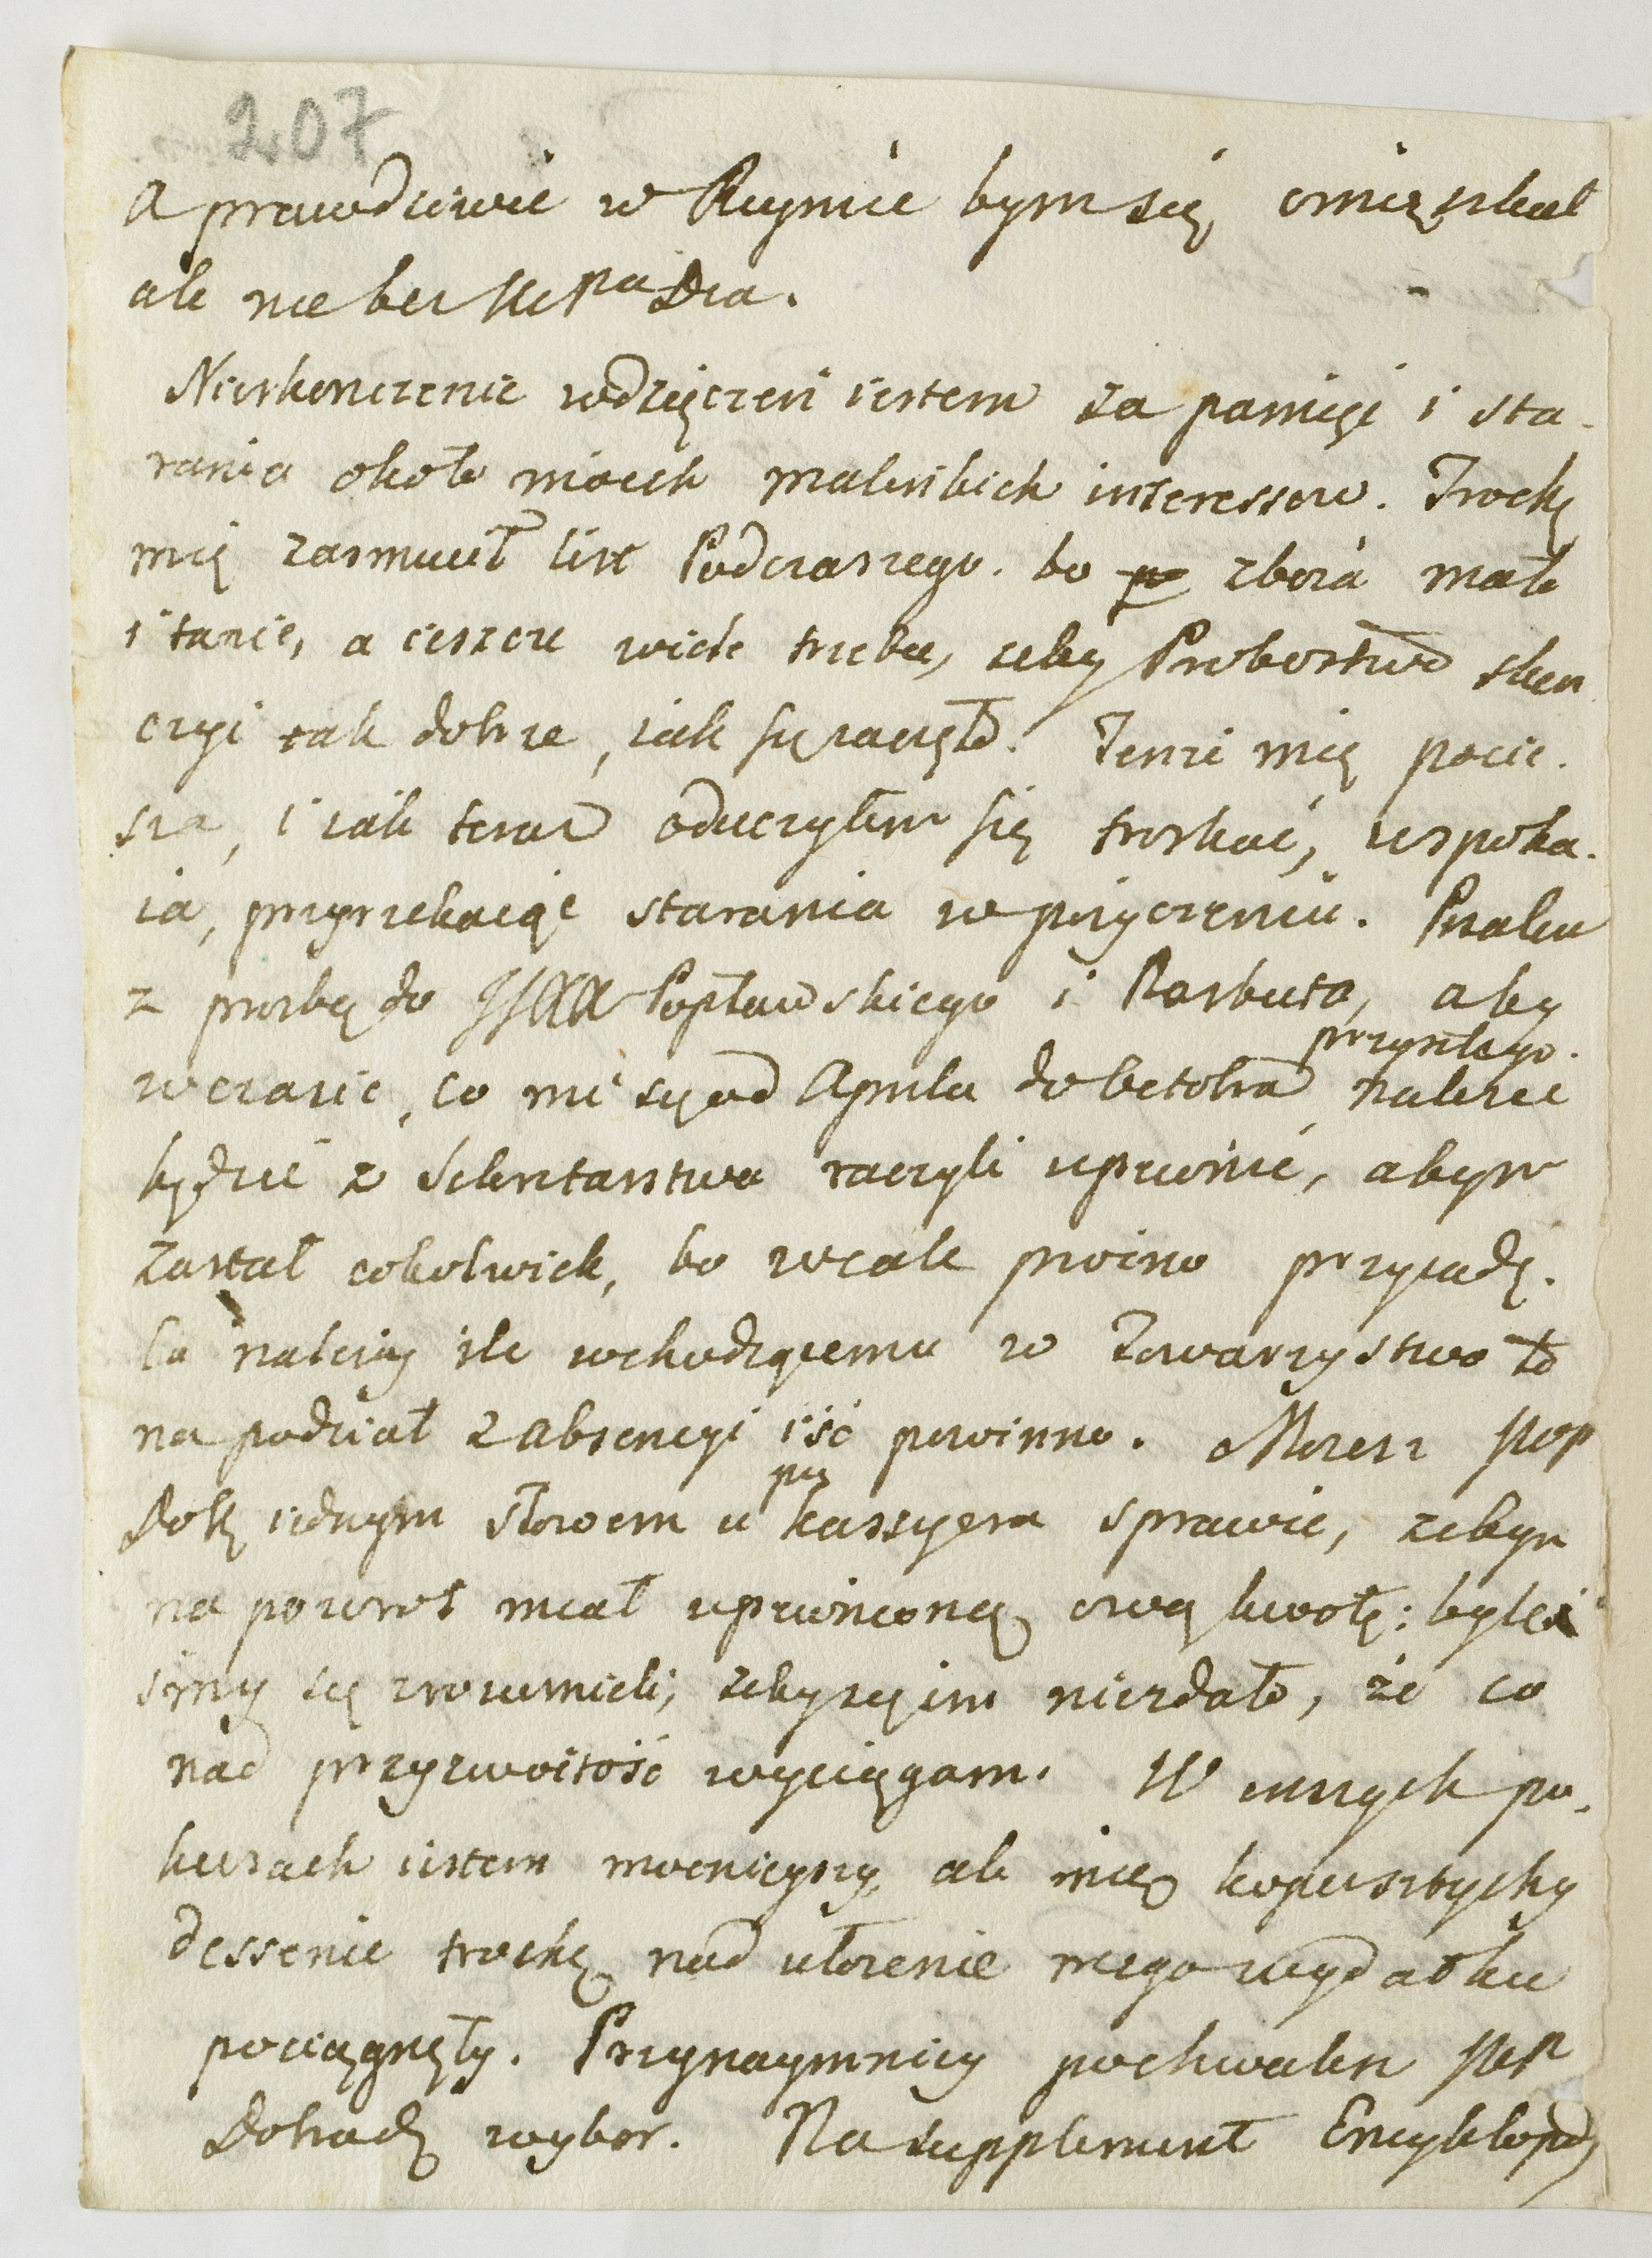 207
a prawdziwie w Rzymie bym się omięszkał
ale nie bez WPana Dra.
Nieskonczenie wdzięczen iestem za pamięć i sta-
rania około moich malenkich interessow. Trochę
mię zasmucił list Podczaszego. bo zboża mało
i tanie, a ieszcze wiele trzeba, zeby Probostwo skon
czyć tak dobrze, iak się zaczęło. Tenze mię pocie-
sza, i iak teraz oduczyłem się troskać, uspoka-
ia, przyrzekaiąc starania w pożyczeniu. Pisałem
z prosbą do Popławskiego i Rosbuta, aby
przyszłego
wczasie, co mi się od Aprila do 8ctobra nalezec
będzie z Sekretarstwa raczyli upewnić, abym
zastał cokolwiek, bo wcale prożno przyiadę.
Co nalezy ile wchodzącemu w Towarzystwo to
na podział z absencyi iść powinno. Mozesz WP
Dobr iednym słowem u JP kassyera sprawić, zebym
na powrot miał upewnioną ową kwotę: byleś
śmy się zrozumieli, zeby się im niezdało, że co
nad przyzwoitość wyciągam. W inszych po-
kusach iestem mocnieyszy, ale mię kopersztychy
dessenie trochę nad ułożenie mego wydatku
pociągnęły. Przynaymniey pochwalisz WP
Dobrodz wybor. Na supplement Encyklopedy